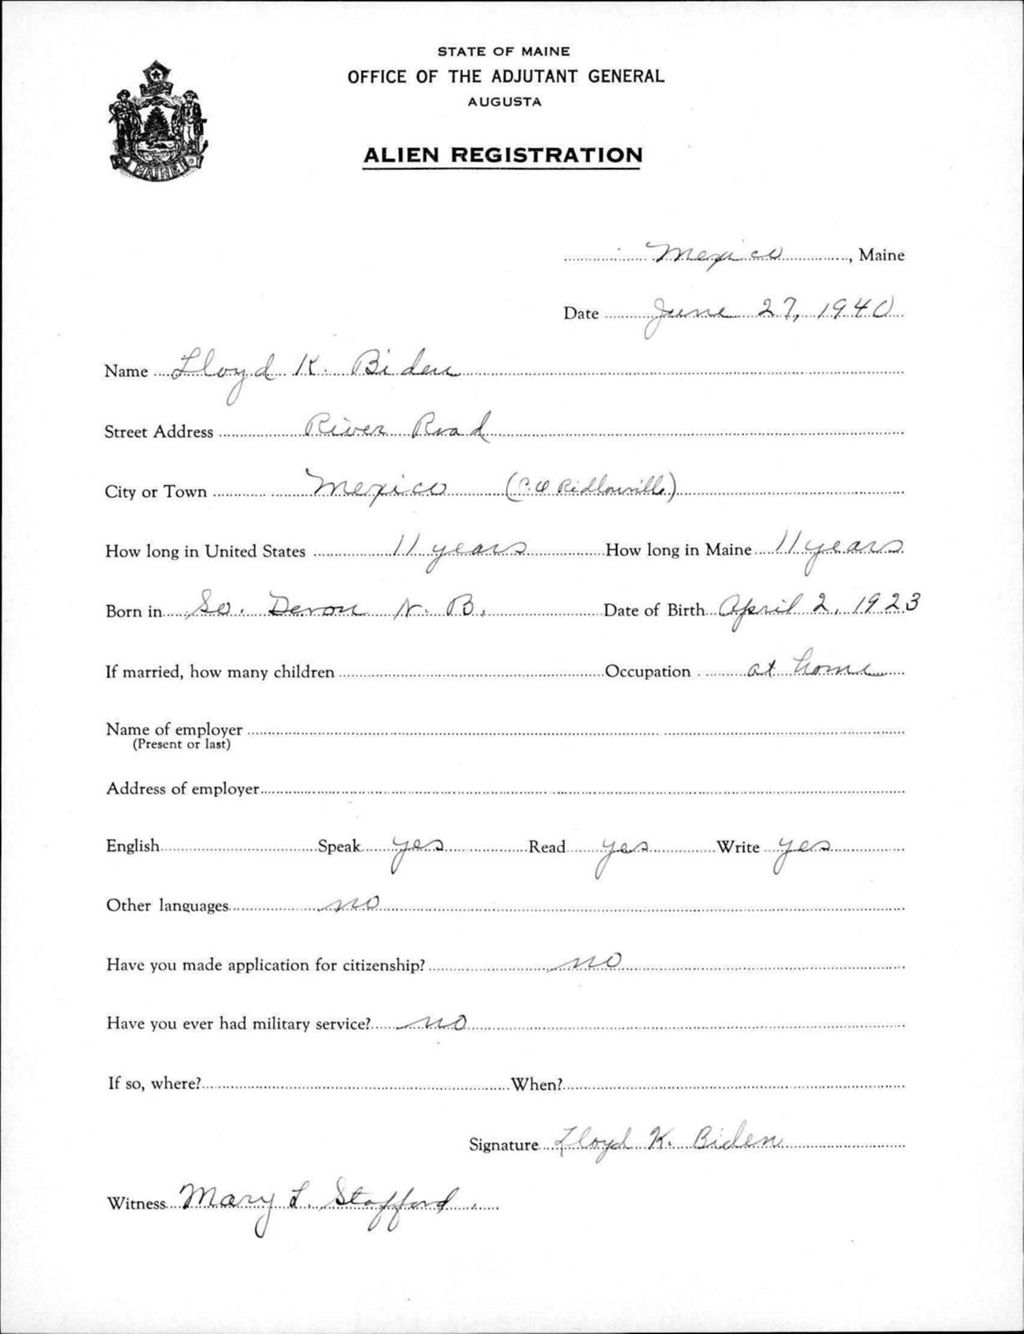 STATE OF MAINE
OFFICE OF THE ADJUTANT GENERAL
AUGUSTA
ALIEN REGISTRATION
MAINE
Mexico, Maine
Date June 27, 1940
Name Lloyd K. Biden
Street Address River Road
City or Town Mexico (P.O Ridlonville)
How long in United States 11 years How long in Maine 11 years
Born in So. Devon N. B. Date of Birth April 2, 1923
If married, how many children Occupation at home
Name of employer
(Present or last)
Address of employer
English Speak yes Read yes Write yes
Other languages no
Have you made application for citizenship? no
Have you ever had military service? no
If so, where? When?
Signature Lloyd K. Biden
Witness Mary L. Stafford